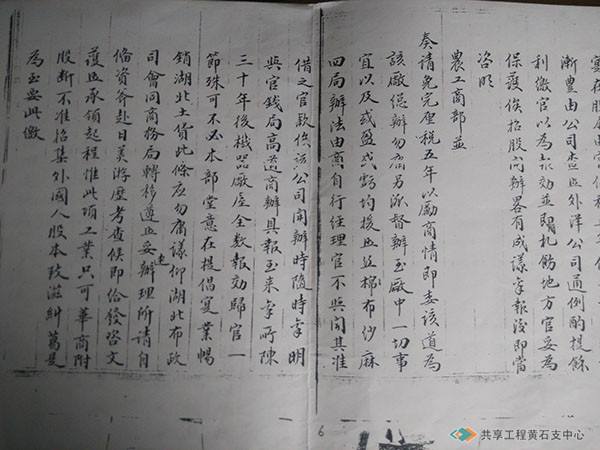 漸豐由公司查照外洋公司通例酌提餘
利繳官以為報効並札飭地方官妥為
保護俟招股開辦畧有成議稟報後即當
咨明
農工商部並
奏請免完釐稅五年以勵商情即委該道為
該廠總辦勿庸另派督辦至廠中一切事
宜以及或盈或虧均援照絲棉布紗麻
四局辦法由商自行經理官不與聞其准
借之官款俟該公司開辦時隨時稟明
與官錢局高道商辦具報至來稟所陳
三十年後機器廠屋全數報効歸官一
節殊可不必本部堂意在提倡實業暢
銷湖北土貨此條應勿庸議仰湖北布政
司會同商務局轉移遵照妥速辦理所請自
備資斧赴日美游歷考查候即給發咨文
護照承領起程惟此項工業只可華商附
股斷不准招集外國人股本致滋糾葛是
為至要此繳
6
共享工程黄石支中心